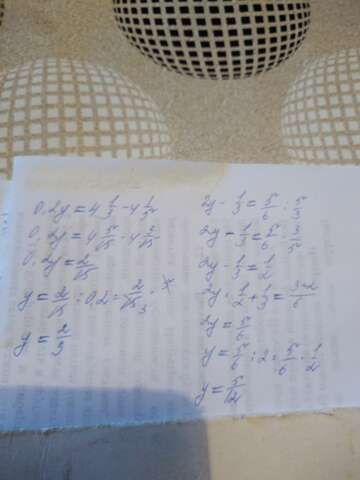 0,2y = 4 1/3 - 4 1/5
0,2y = 4 5/15 - 4 3/15
0,2y = 2/15
y = 2/15 : 0,2 = 2/15 ·
y = 2/3
2y - 1/3 = 5/6 : 5/3
2y - 1/3 = 5/6 · 3/5
2y - 1/3 = 1/2
2y = 1/2 + 1/3 = 3+2/6
2y = 5/6
y = 5/6 : 2 = 5/6 · 1/2
y = 5/12